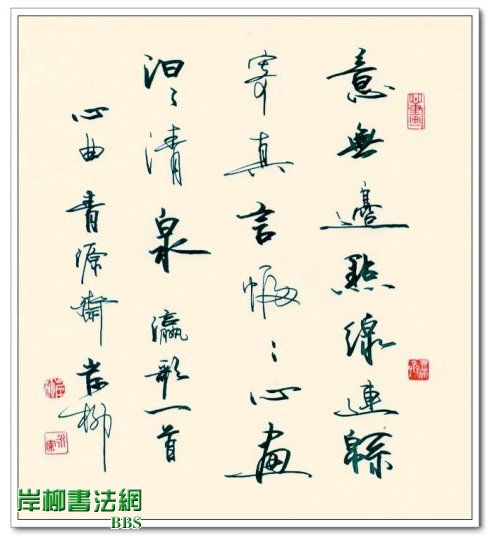 意無邊點線連緜
寄真言幅〻心畫
汩〻清泉 瀛歌一首
心曲 青源齋 岸柳
岸柳書法網
BBS